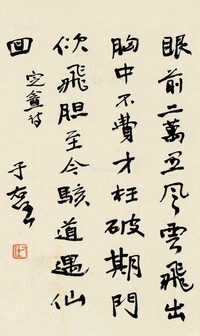 眼前二萬里風雲飛出
胸中不費才枉破期門
佽飛膽至今駭道遇仙
回
定盦詩
于右任